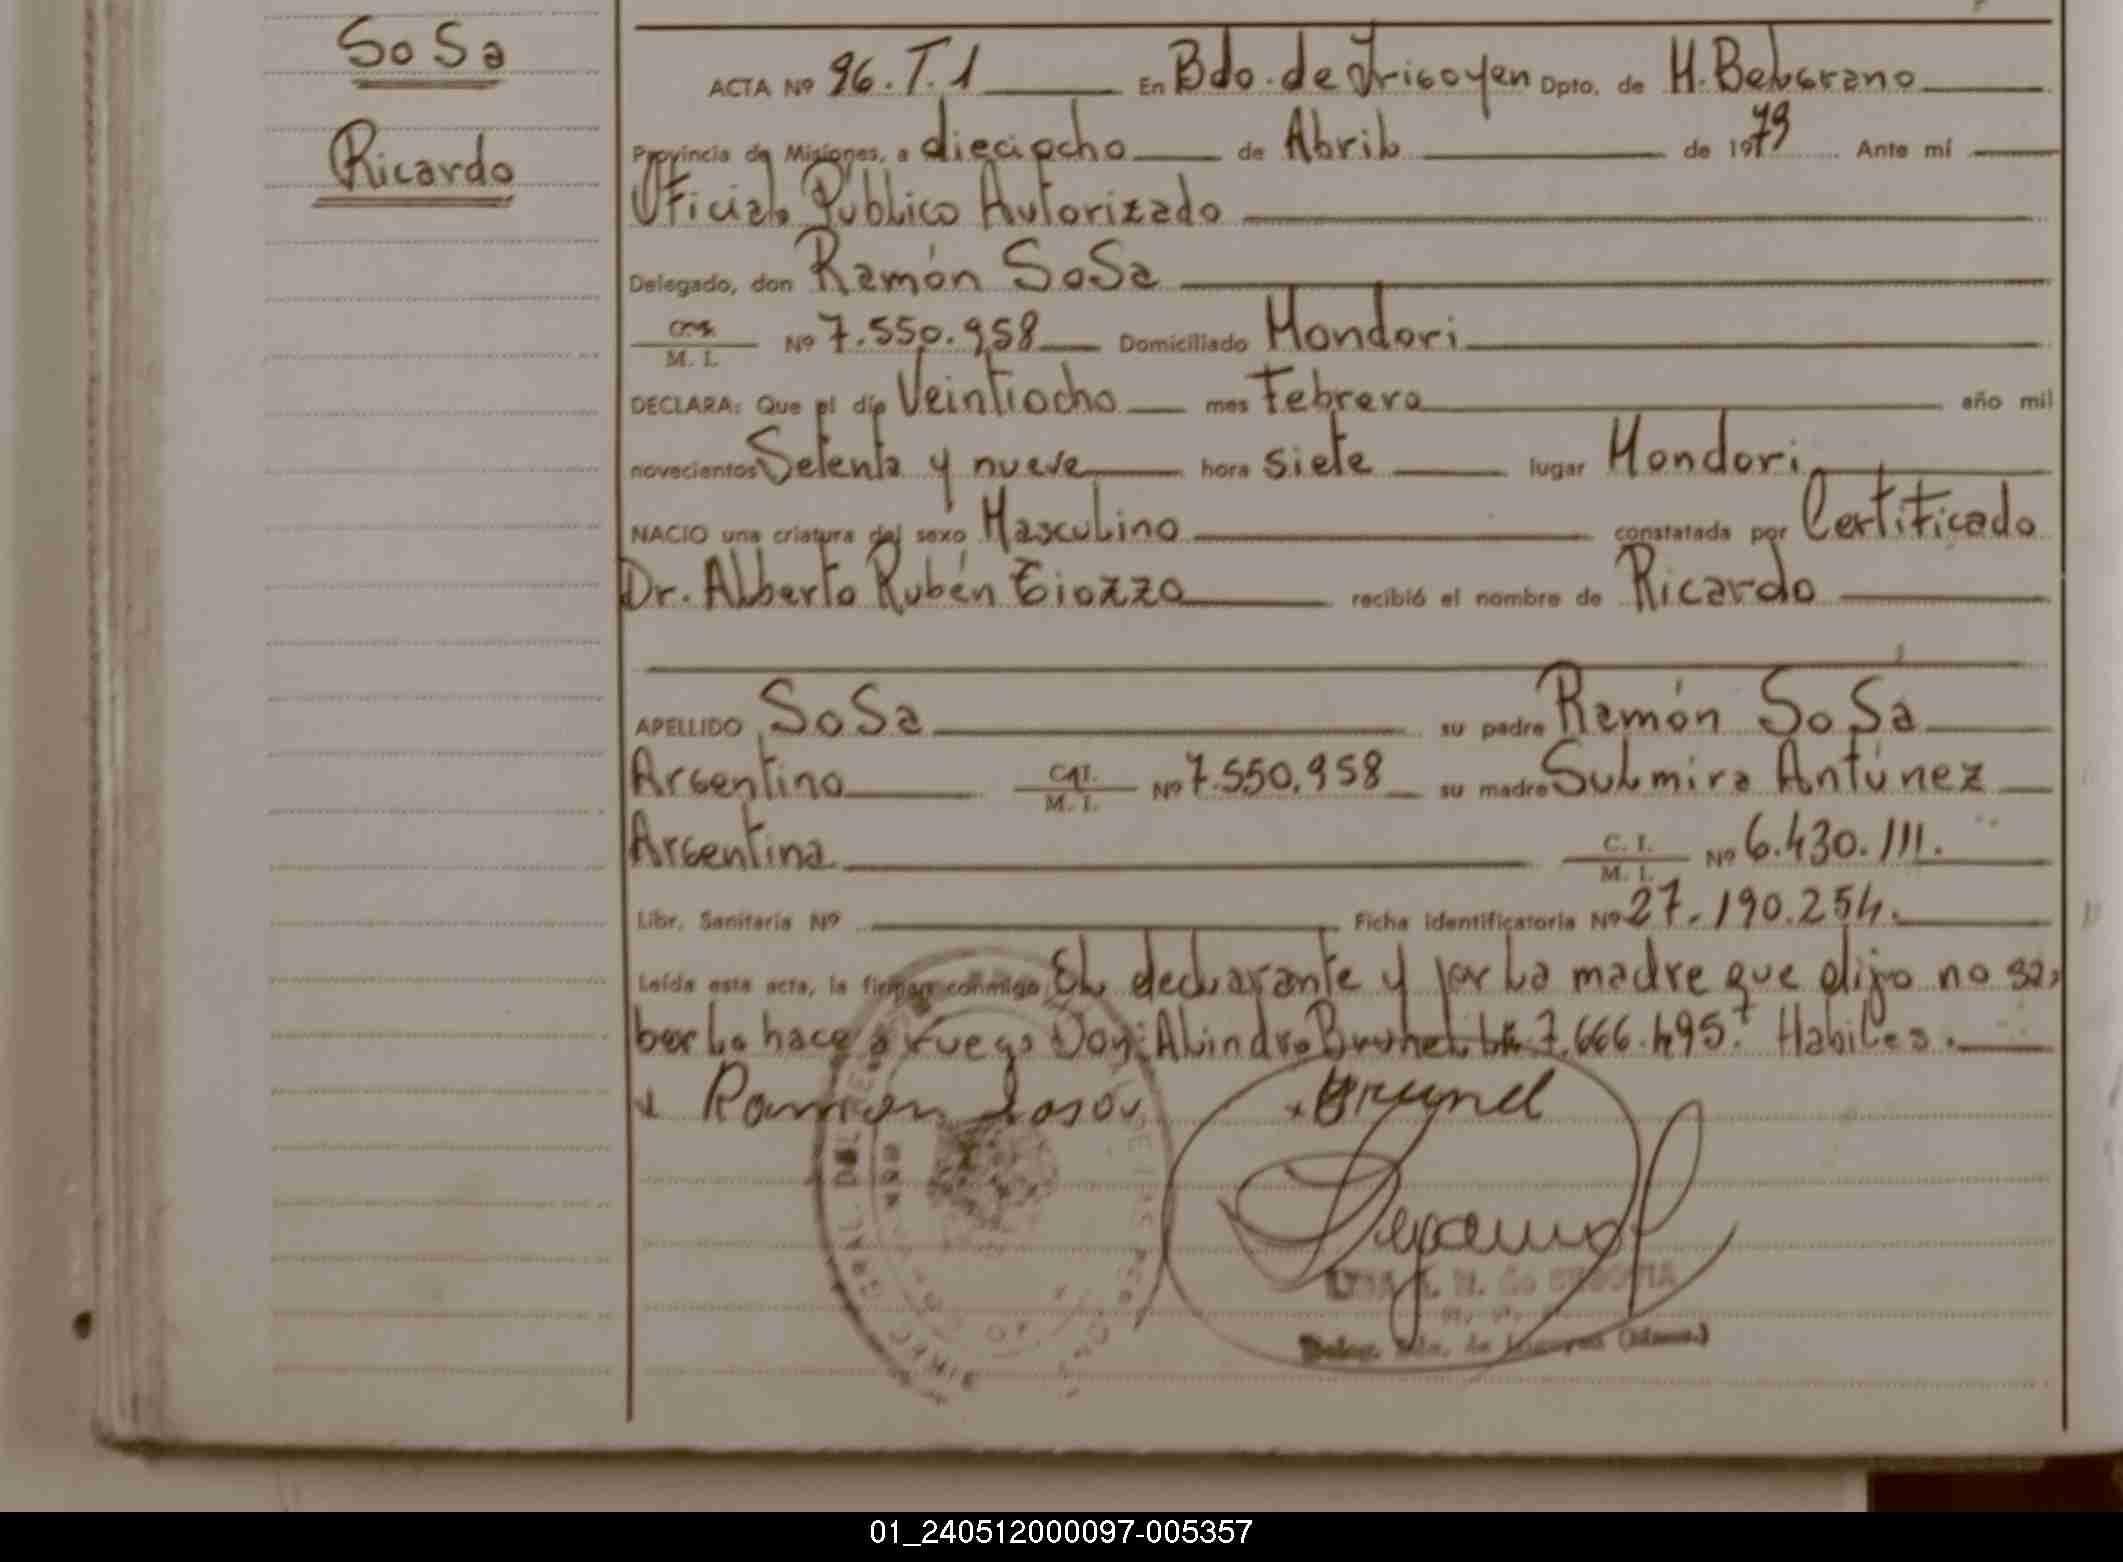 SoSa
Ricardo
ACTA Nº 96.T.1 En Bdo. de Irigoyen Dpto. de M. Belgrano
Provincia de Misiones, a dieciocho de Abril de 1979 Ante mí
Oficial Público Autorizado
Delegado, don Ramón SoSa
M. I. Nº 7.550.958 Domiciliado Mondori
DECLARA: Que el día Veintiocho mes Febrero año mil
novecientos Setenta y nueve hora siete lugar Mondori
NACIO una criatura del sexo Masculino constatada por Certificado
Dr. Alberto Rubén Giozzo recibió el nombre de Ricardo
APELLIDO SoSa su padre Ramón SoSa
Argentino C.I. M. I. Nº 7.550.958 su madre Sulmira Antúnez
Argentina C. I. M. I. Nº 6.430.111.
Libr. Sanitaria Nº Ficha identificatoria Nº 27.190.254.
Leída esta acta, la firman conmigo El declarante y por la madre que dijo no sa-
ber lo hace a ruego Don: Alindro Brunel 7.666.495. Habiles.
Ramon Sosa Brunel
de SEGOVIA
01_240512000097-005357